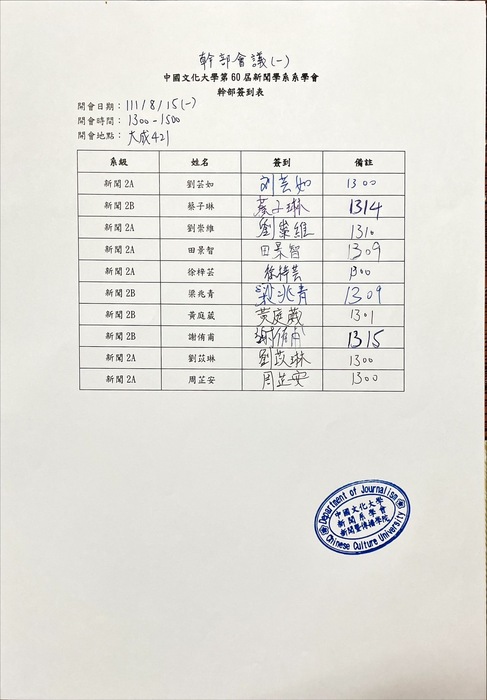 幹部會議(一)
中國文化大學第 60 屆新聞學系系學會
幹部簽到表
開會日期：111/8/15(一)
開會時間：1300-1500
開會地點：大成421
系級 姓名 簽到 備註
新聞 2A 劉芸如 刘芸如 1300
新聞 2B 蔡子琳 蔡子琳 1314
新聞 2A 劉崇維 劉崇維 1310
新聞 2A 田景智 田景智 1309
新聞 2A 徐梓芸 徐梓芸 1300
新聞 2B 梁兆青 梁兆青 1309
新聞 2B 黃庭葳 黃庭葳 1301
新聞 2B 謝侑甫 謝侑甫 1315
新聞 2A 劉苡琳 劉苡琳 1300
新聞 2A 周芷安 周芷安 1300
Department of Journalism
中國文化大學
新聞系學會
新聞暨傳播學院
Chinese Culture University